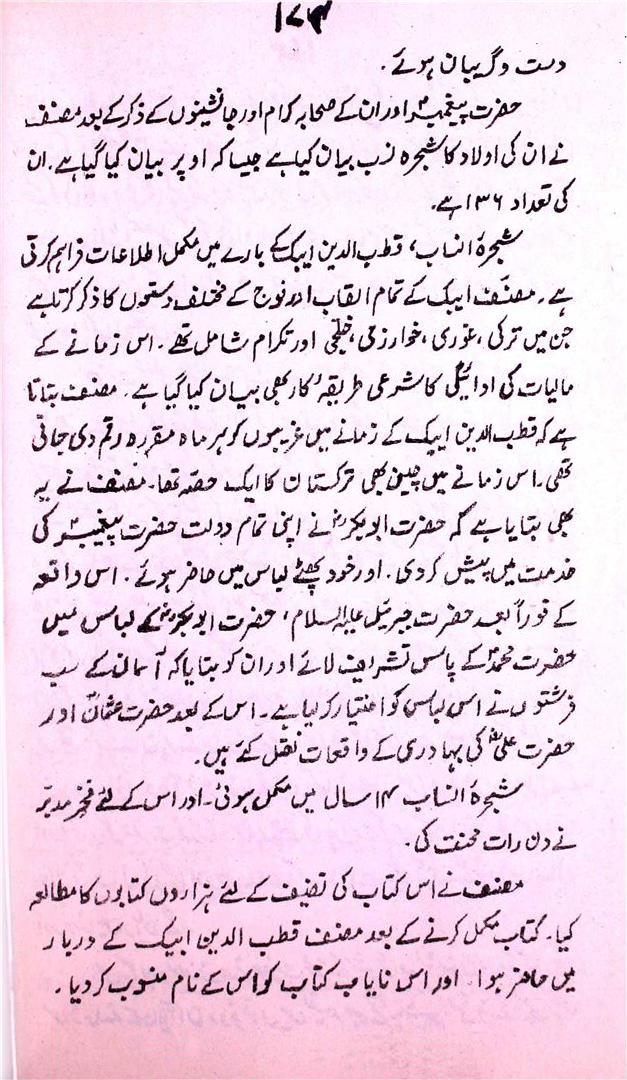 ۱۷۳
دست و گریبان ہوئے ۔
حضرت پیغمبرؐ اور ان کے صحابہ کرام اور جانشینوں کے ذکر کے بعد مصنف
نے ان کی اولاد کا شجرہ نسب بیان کیا ہے جیسا کہ اوپر بیان کیا گیا ہے ۔ ان
کی تعداد ۱۳۶ ہے ۔
شجرۂ انساب ، قطب الدین ایبک کے بارے میں مکمل اطلاعات فراہم کرتی
ہے ۔ مصنف ایبک کے تمام القاب اور فوج کے مختلف دستوں کا ذکر کرتا ہے
جن میں ترکی ، غوری ، خوارزمی ، خلجی اور تکرام شامل تھے ۔ اس زمانے کے
مالیات کی ادائیگی کا شرعی طریقۂ کار بھی بیان کیا گیا ہے ۔ مصنف بتاتا
ہے کہ قطب الدین ایبک کے زمانے میں غریبوں کو ہر ماہ مقررہ رقم دی جاتی
تھی ۔ اس زمانے میں چین بھی ترکستان کا ایک حصّہ تھا ۔ مصنف نے یہ
بھی بتایا ہے کہ حضرت ابوبکرؓ نے اپنی تمام دولت حضرت پیغمبرؐ کی
خدمت میں پیش کر دی ۔ اور خود پھٹے لباس میں حاضر ہوئے ۔ اس واقعہ
کے فوراً بعد حضرت جبرئیل علیہ السلام ، حضرت ابوبکرؓ کے لباس میں
حضرت محمدؐ کے پاس تشریف لائے اور ان کو بتایا کہ آسمان کے سب
فرشتوں نے اس لباس کو اختیار کر لیا ہے ۔ اس کے بعد حضرت عثمانؓ اور
حضرت علیؓ کی بہادری کے واقعات نقل کئے ہیں ۔
شجرۂ انساب ۱۴ سال میں مکمل ہوئی ۔ اور اس کے لئے فخر مدبّر
نے دن رات محنت کی ۔
مصنف نے اس کتاب کی تصنیف کے لئے ہزاروں کتابوں کا مطالعہ
کیا ۔ کتاب مکمل کرنے کے بعد مصنف قطب الدین ایبک کے دربار
میں حاضر ہوا ۔ اور اس نایاب کتاب کو اس کے نام منسوب کر دیا ۔